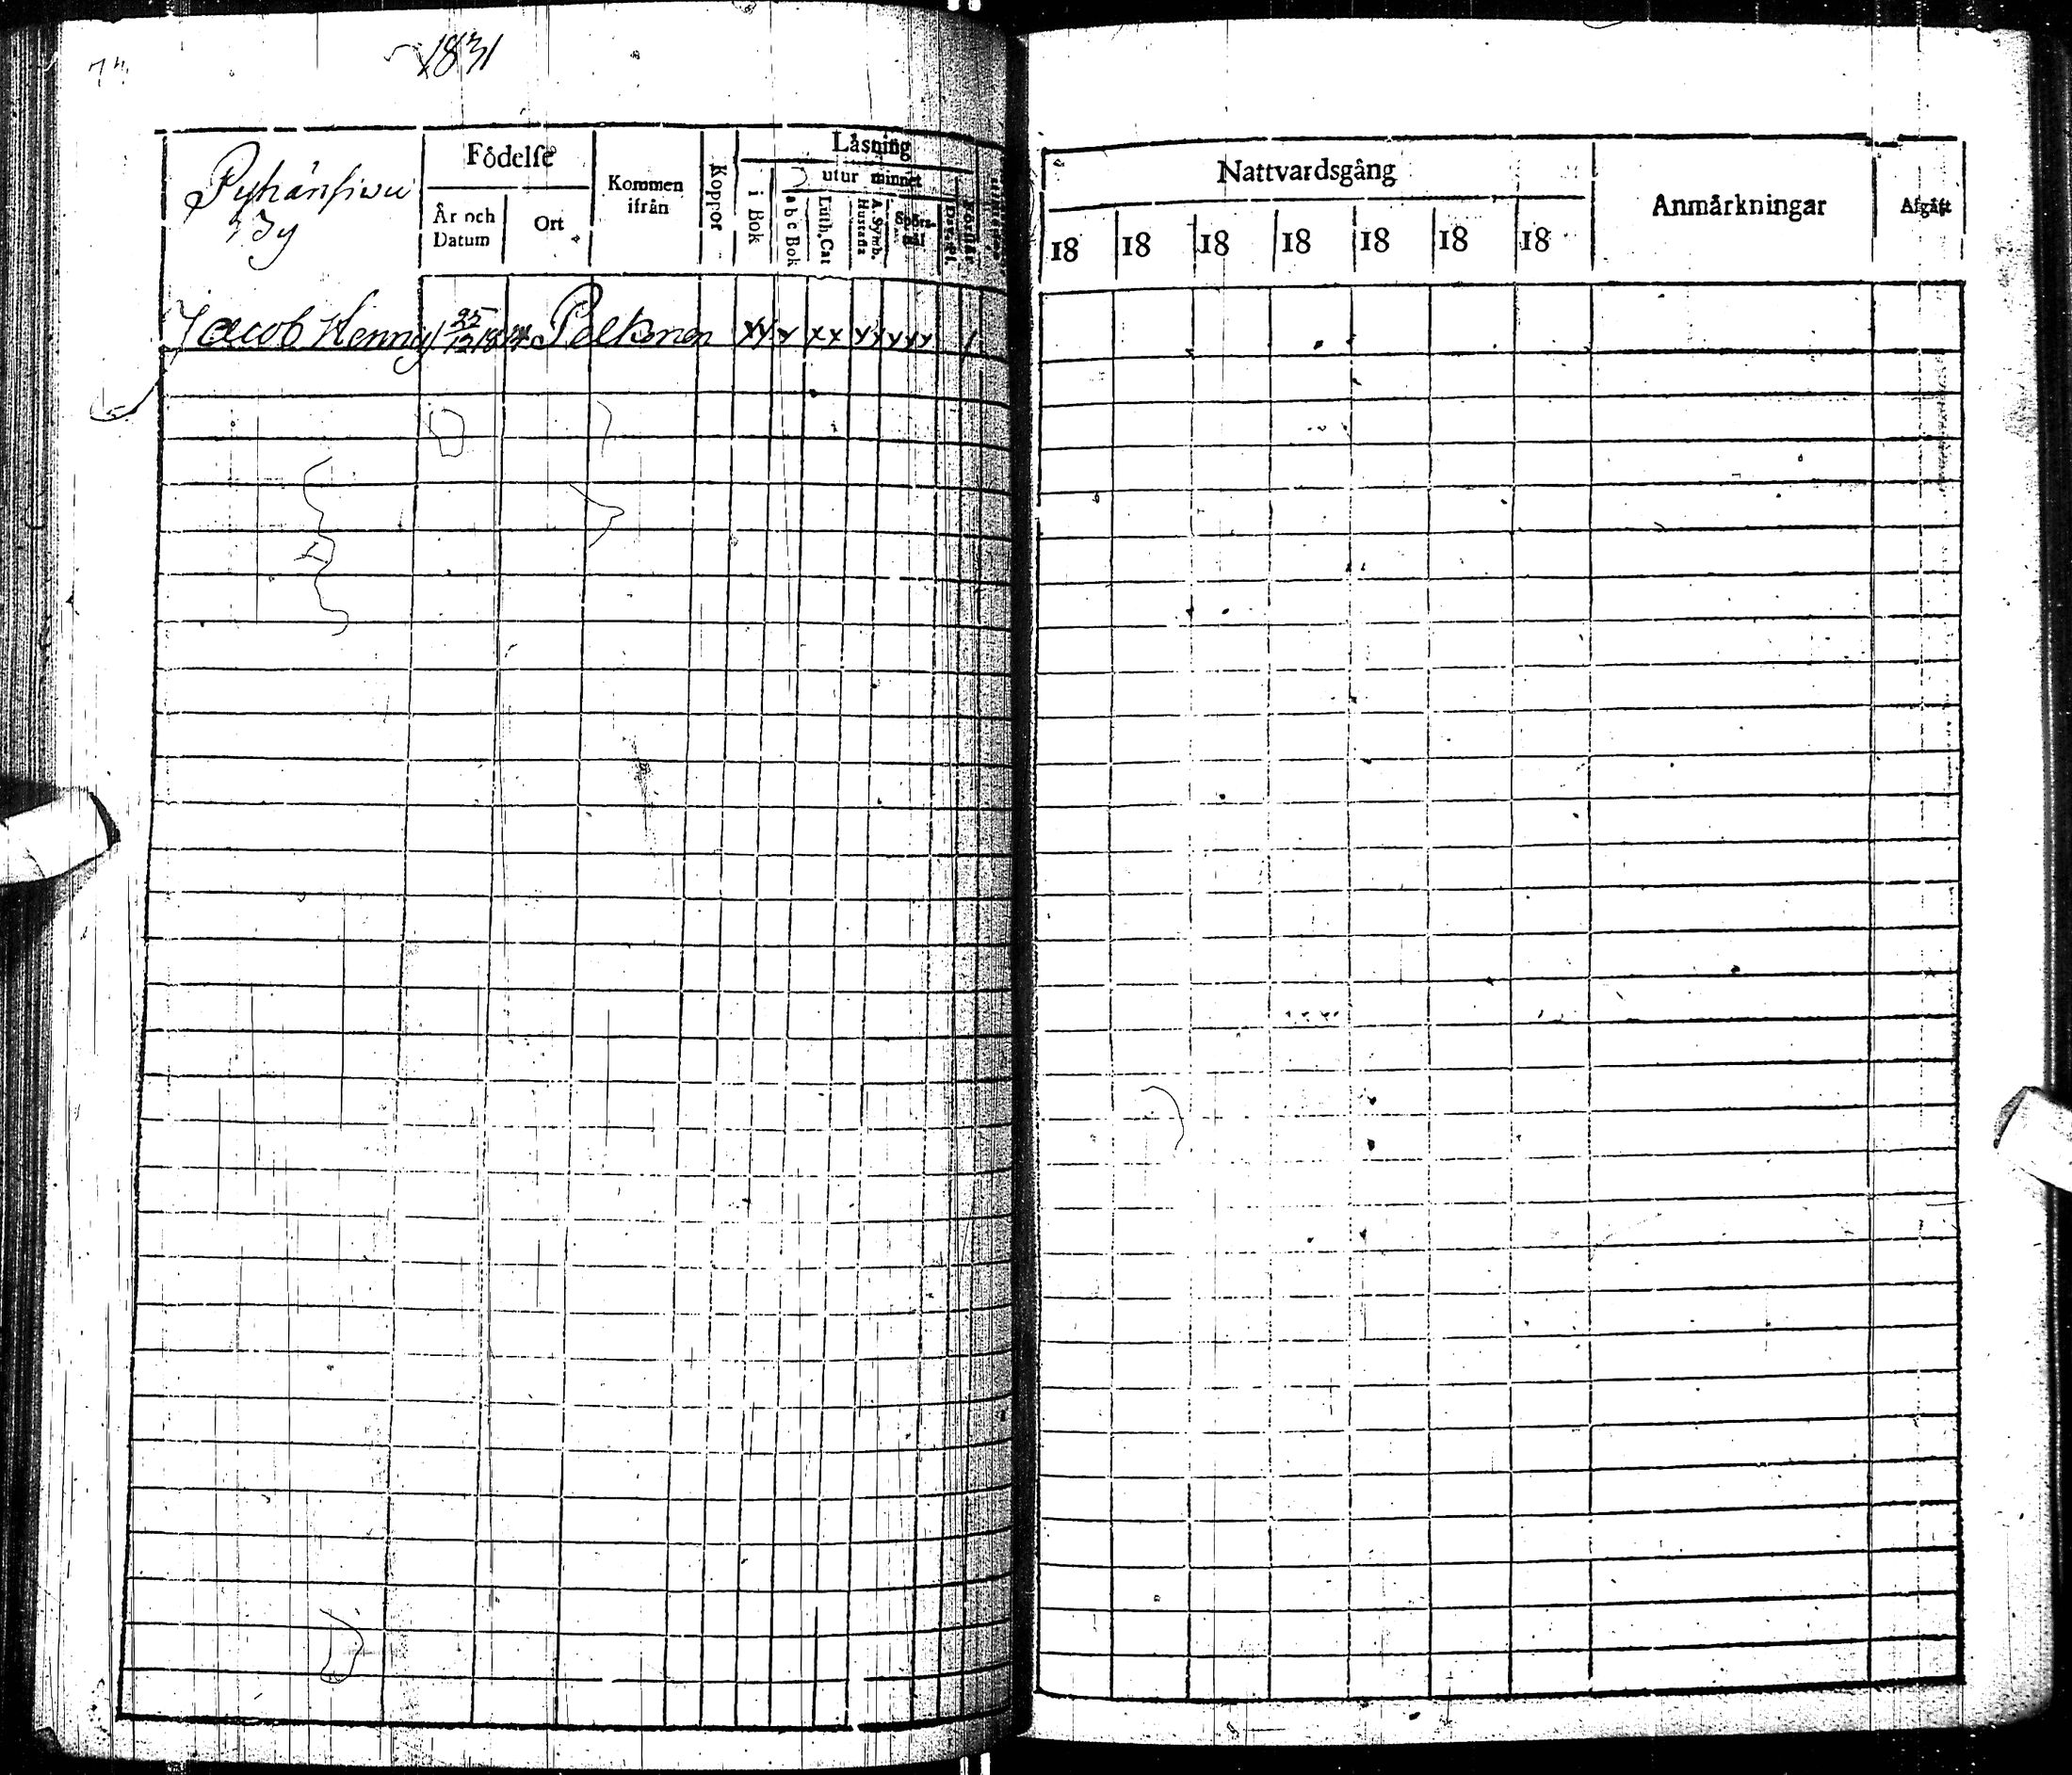 1831
Pyhänsivu
By
Födelse
År och Datum
Ort
Kommen ifrån
Koppor
Läsning
i Bok
utur minnet
a b c Bok
Luth. Cat
A. Symb. Hustafla
Spörs-mål
Jacob Henny 25/12 18 Pelkenen xx x xx xx xxx 1
Nattvardsgång
18 18 18 18 18 18 18
Anmärkningar
Afgått